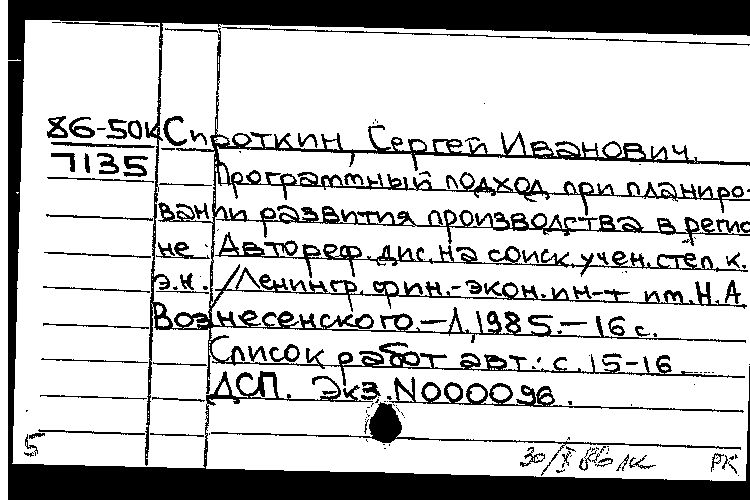 86-50К Сироткин, Сергей Иванович.
7135 Программный подход при планиро-
вании развития производства в регио
не. Автореф. дис. на соиск. учен. степ. к.
э.н. /Ленингр. фин.-экон. ин-т им. Н.А.
Вознесенского.-Л., 1985.-16 с.
Список работ авт.: с. 15-16.
ДСП. Экз. N000096.
5
30/X 86 РК